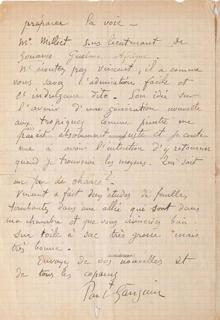 préparer la voie —
Mr Milliet sous lieutenant de
Zouaves Guelma Afrique.
N'écoutez pas Vincent, il a comme
vous savez l'admiration facile et
l'indulgence dito. Son idée sur
l'avenir d'une génération nouvelle
aux tropiques comme peintre me
paraît absolument juste et je continue
à avoir l'intention d'y retourner
quand je trouverai les moyens. Qui sait
un peu de chance?.
Vincent a fait deux études de feuilles
tombantes dans une allée qui sont dans
ma chambre et que vous aimeriez bien
sur toile à sac très grosse mais
très bonne.
Envoyez de vos nouvelles et
de tous les copains
Paul Gauguin